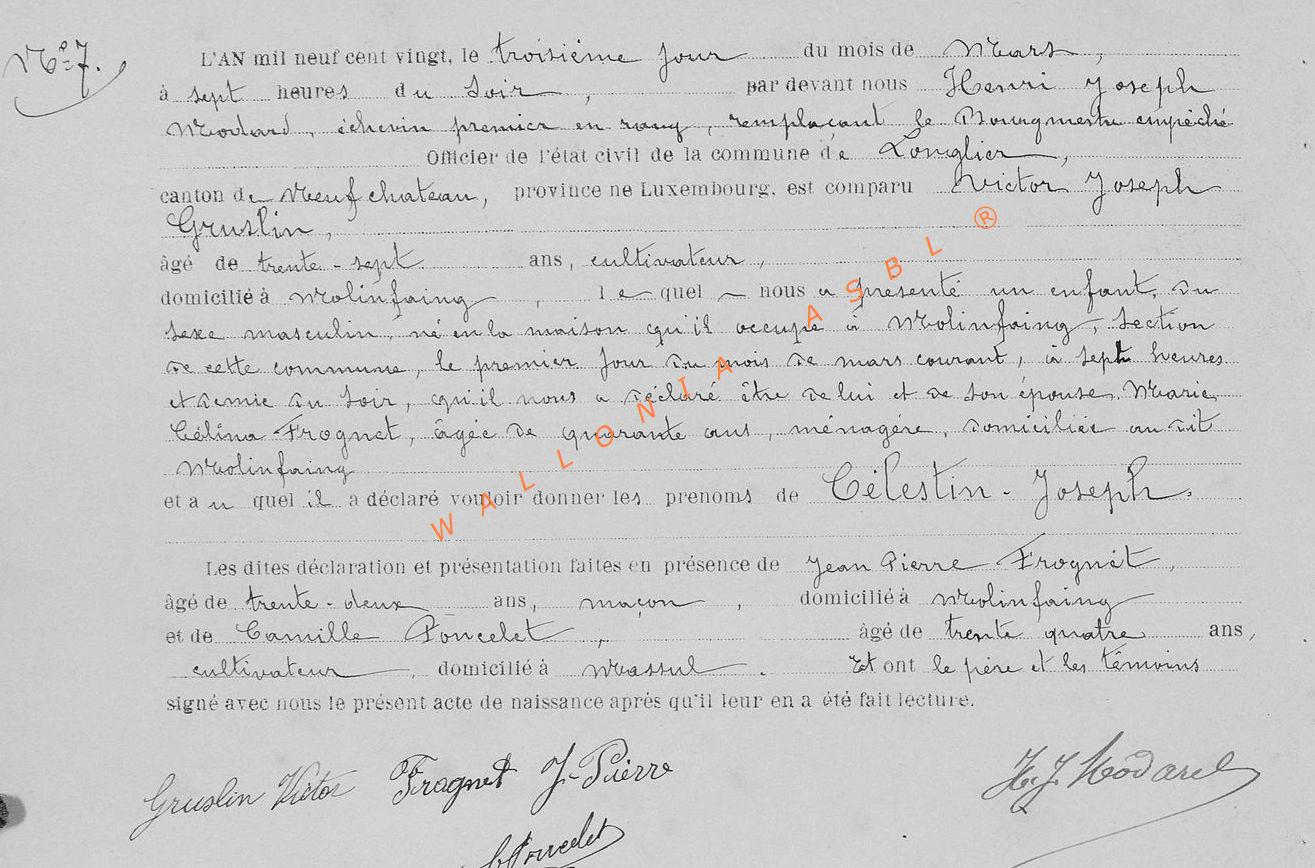 N° 7.
L'AN mil neuf cent vingt, le troisième jour du mois de Mars,
à sept heures du Soir, par devant nous Henri Joseph
Modard, échevin premier en rang, remplaçant le Bourgmestre empêché
Officier de l'état civil de la commune de Longlier,
canton de Neufchateau, province ne Luxembourg, est comparu Victor Joseph
Gruslin,
âgé de trente-sept ans, cultivateur,
domicilié à Molinfaing, lequel nous a présenté un enfant, du
sexe masculin, né en la maison qu'il occupe à Molinfaing, section
de cette commune, le premier jour du mois de mars courant, à sept heures
et demie du soir, qu'il nous a déclaré être de lui et de son épouse, Marie,
Célina Frognet, âgée de quarante ans, ménagère, domiciliée au dit
Molinfaing
et au quel il a déclaré vouloir donner les prenoms de Célestin-Joseph.
Les dites déclaration et présentation faites en présence de Jean Pierre Frognet,
âgé de trente-deux ans, maçon, domicilié à Molinfaing
et de Camille Poncelet, âgé de trente quatre ans,
cultivateur, domicilié à Massul. Et ont le père et les témoins
signé avec nous le présent acte de naissance après qu'il leur en a été fait lecture.
Gruslin Victor Frognet J-Pierre H.J. Modard
C Poncelet
WALLONIA ASBL ®